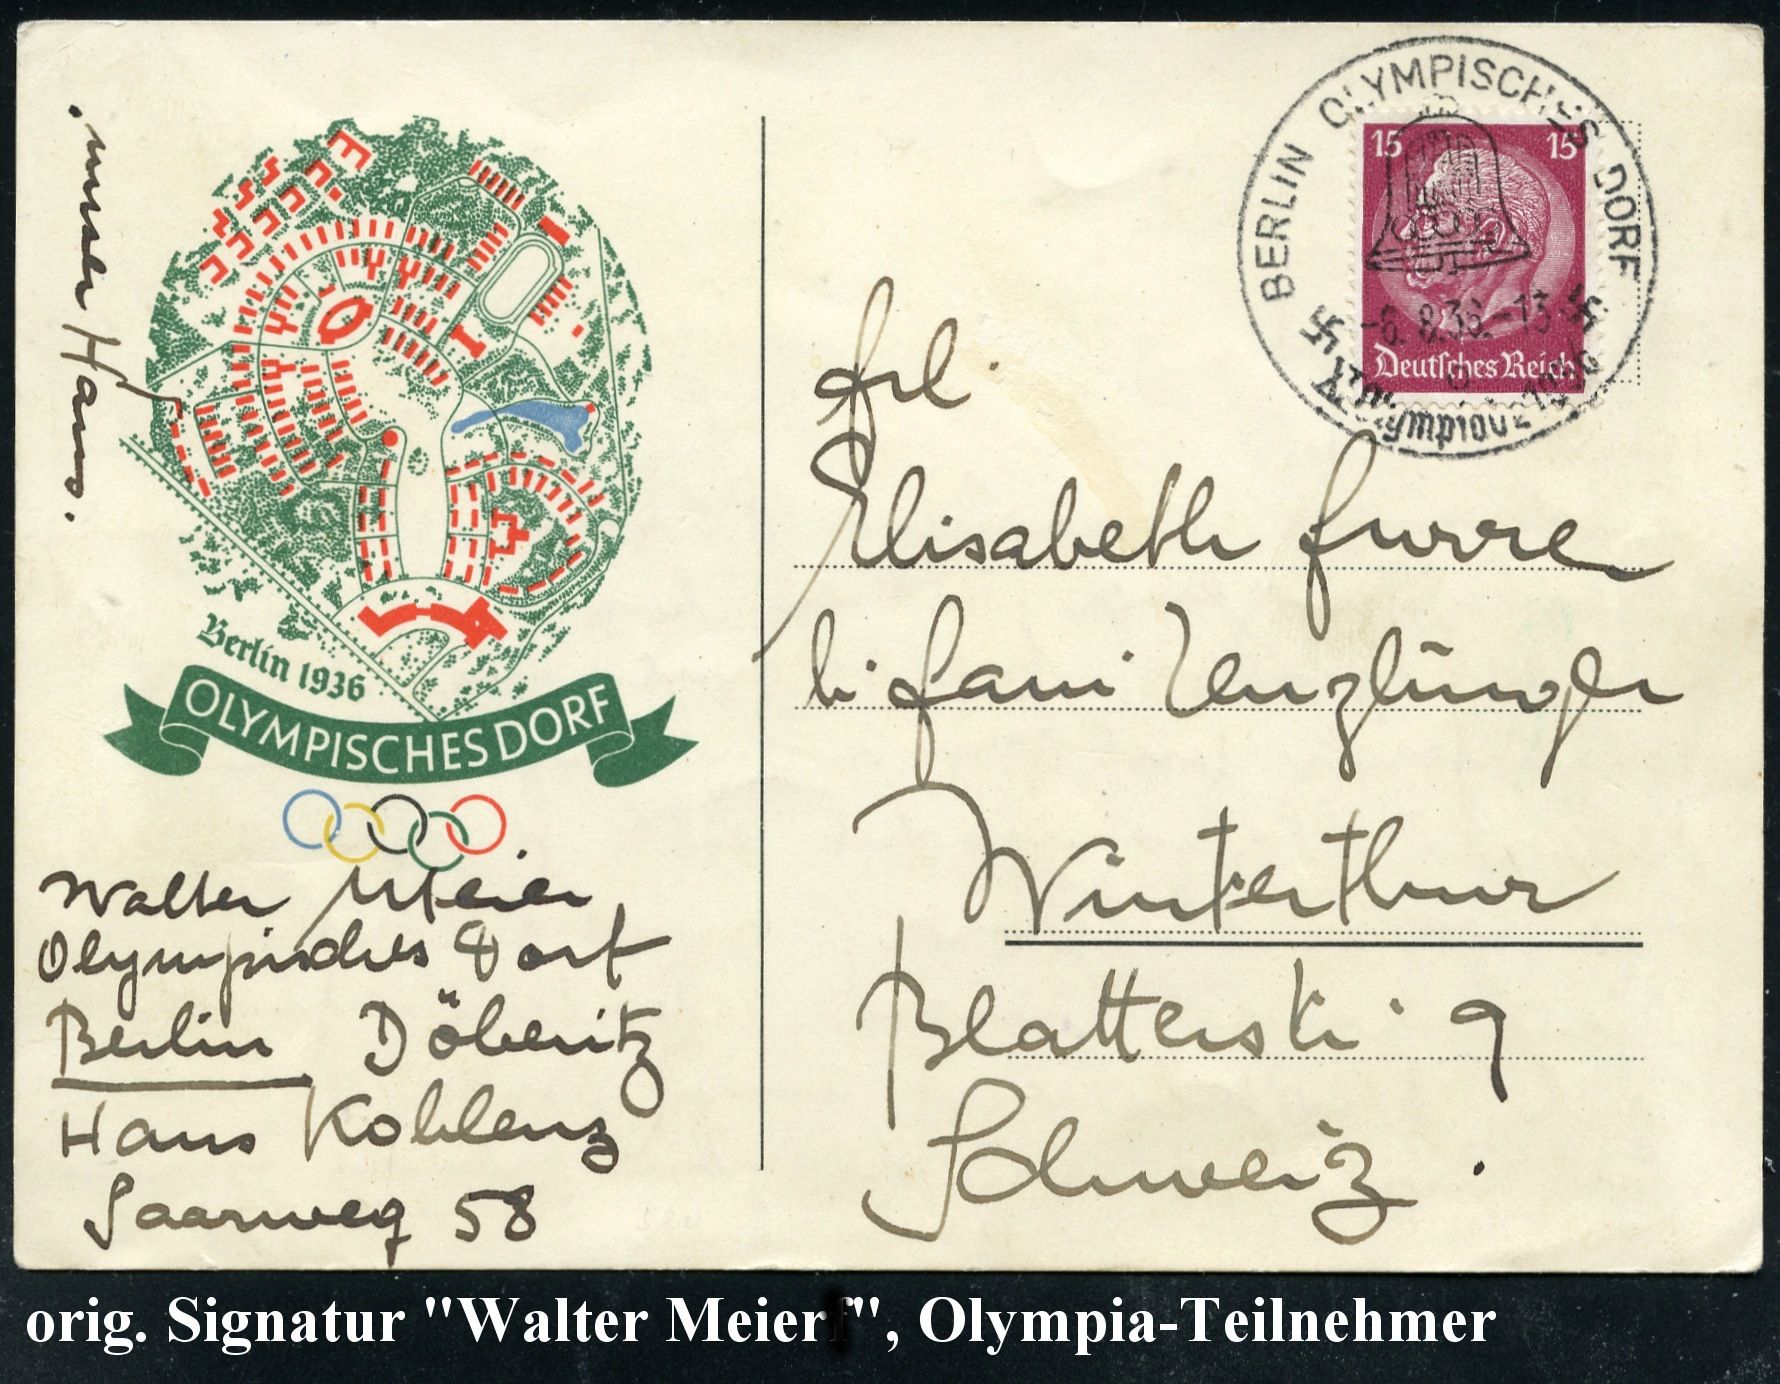 unser Haus.
Berlin 1936
OLYMPISCHES DORF
Walter Meier
Olympisches Dorf
Berlin Döberitz
Haus Koblenz
Saarweg 58
BERLIN OLYMPISCHES DORF
15 15
-6.8.36.-13
Deutsches Reich
Olympiade 1936
Frl.
Elisabeth Furrer
b. Fam.
Winterthur
Blatterstr. 9
Schweiz.
orig. Signatur "Walter Meier", Olympia-Teilnehmer